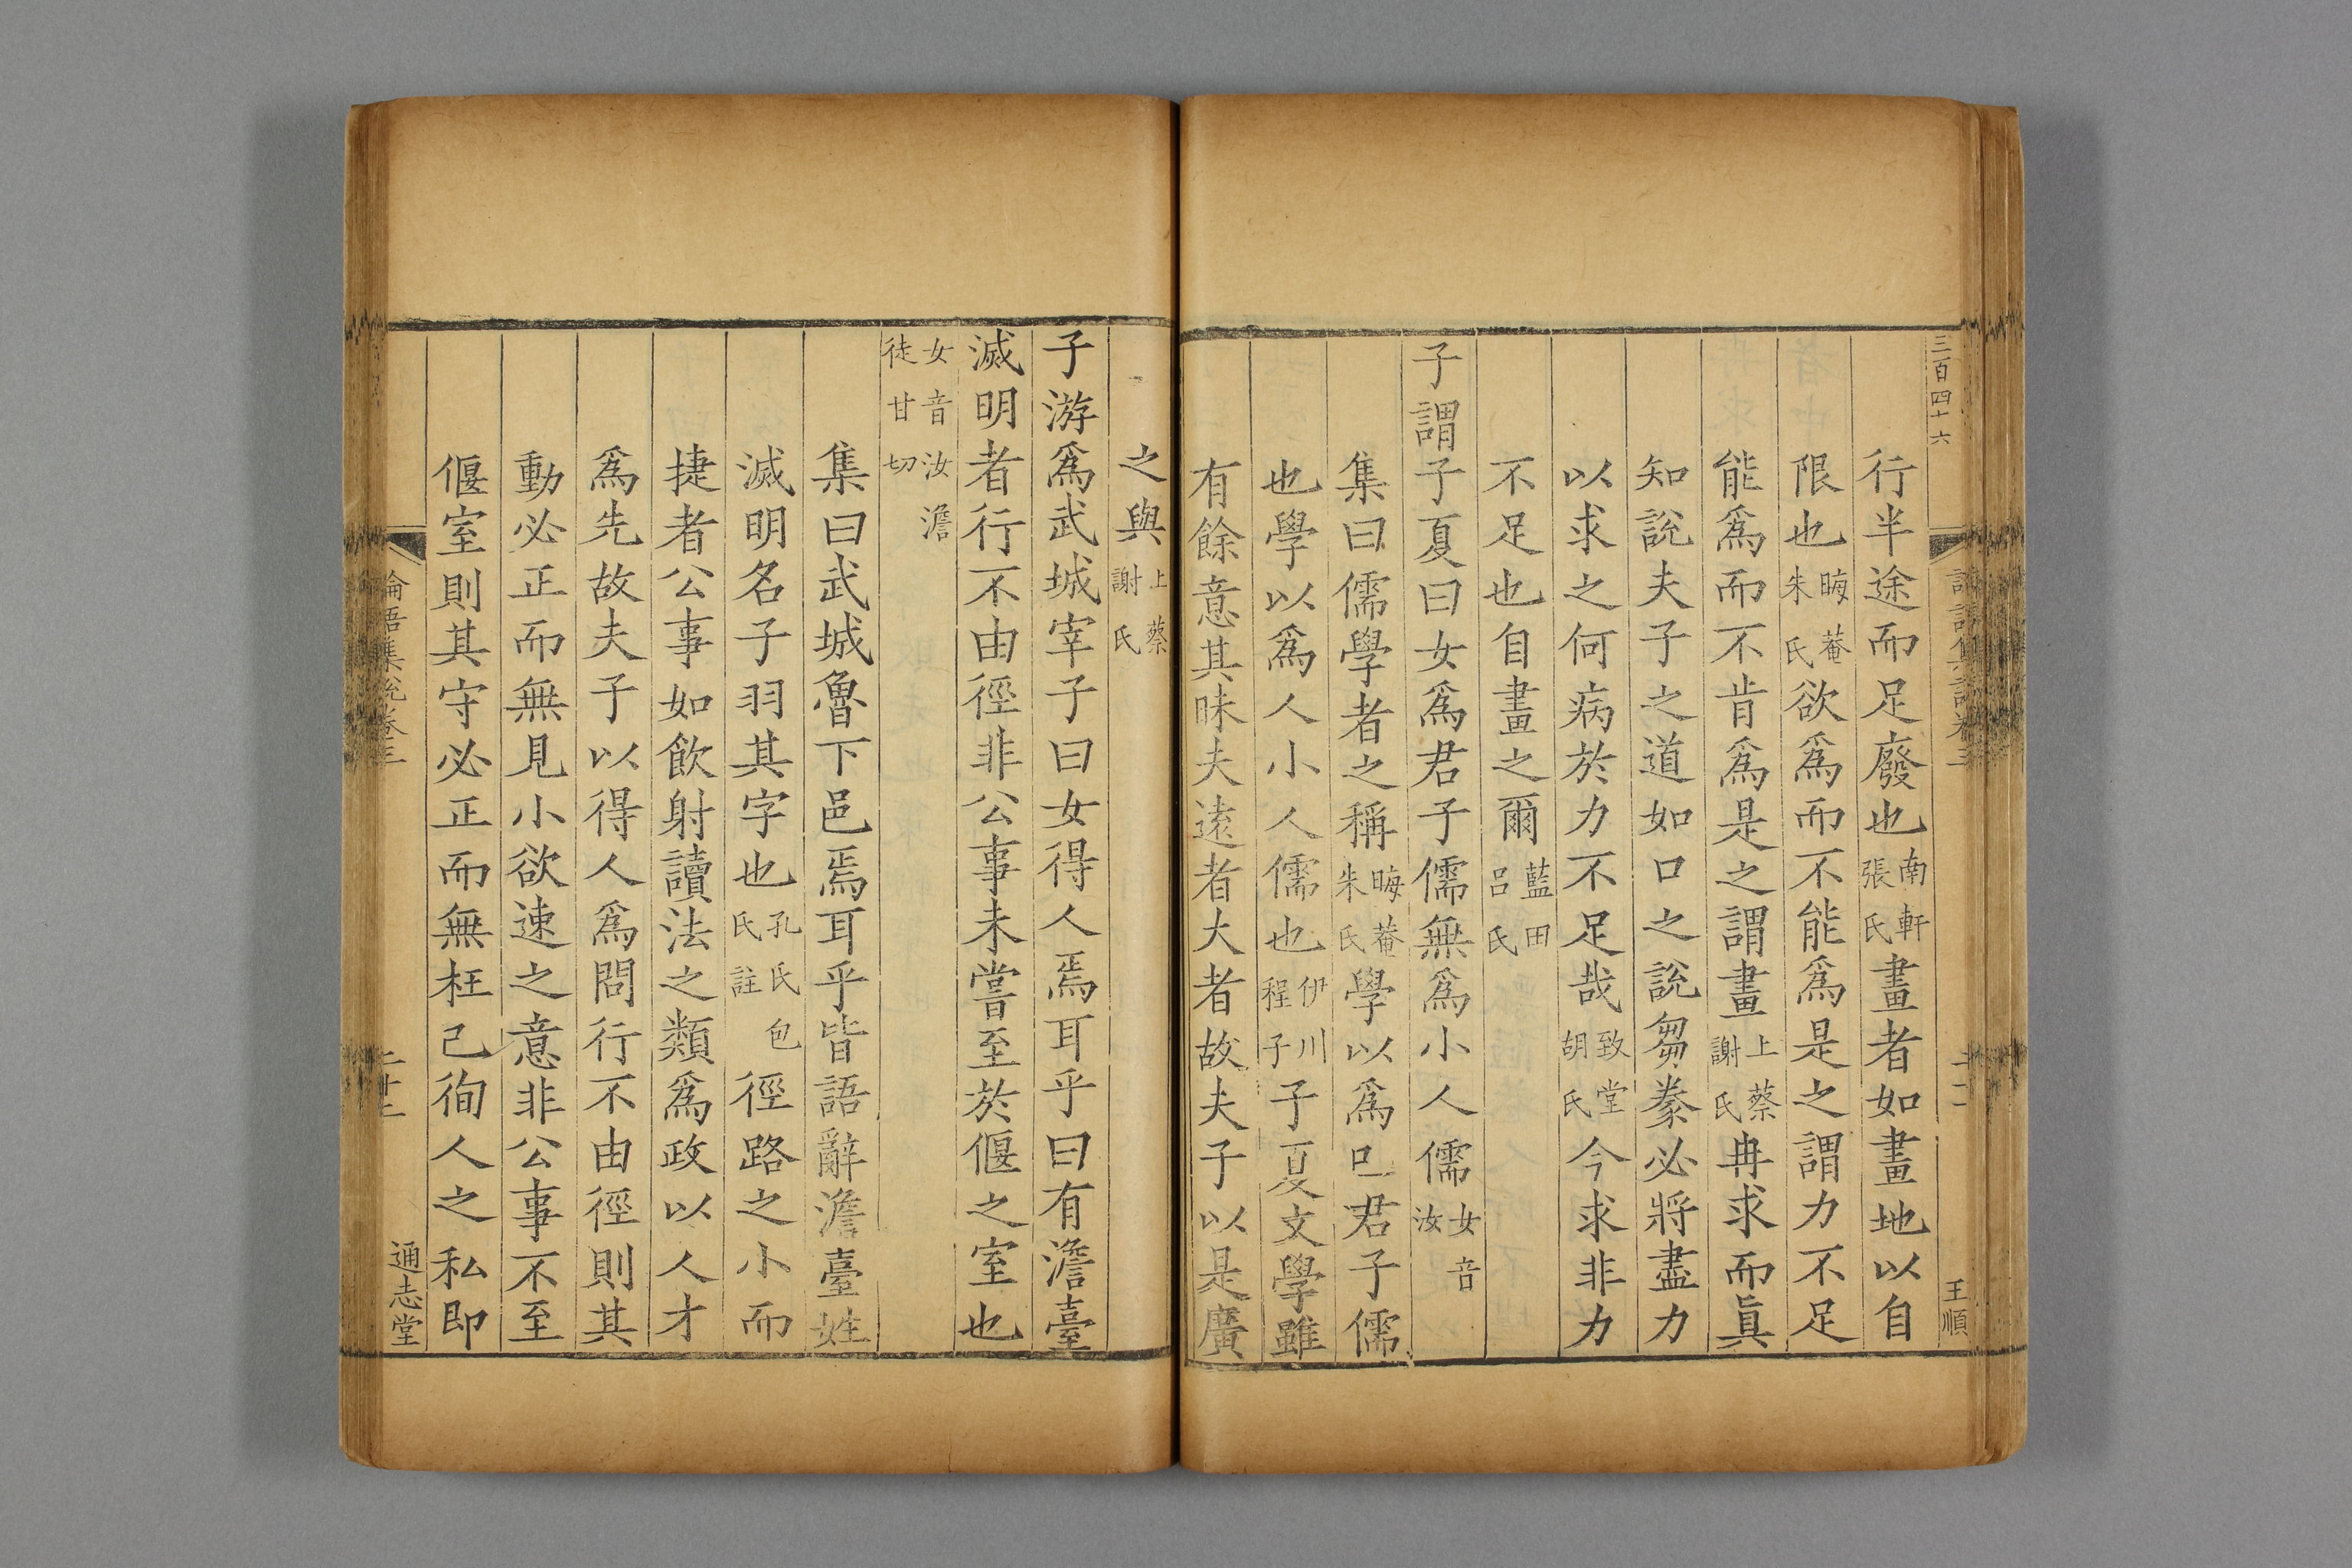 三百四十六
王順
行半途而足廢也南軒張氏畫者如畫地以自
限也晦菴朱氏欲爲而不能爲是之謂力不足
能爲而不肯爲是之謂畫上蔡謝氏冉求而眞
知說夫子之道如口之說芻豢必將盡力
以求之何病於力不足哉致堂胡氏今求非力
不足也自畫之爾藍田呂氏
子謂子夏曰女爲君子儒無爲小人儒女音汝
集曰儒學者之稱晦菴朱氏學以爲己君子儒
也學以爲人小人儒也伊川程子子夏文學雖
有餘意其昧夫遠者大者故夫子以是廣
之與上蔡謝氏
子游爲武城宰子曰女得人焉耳乎曰有澹臺
滅明者行不由徑非公事未嘗至於偃之室也
女音汝澹徒甘切
集曰武城魯下邑焉耳乎皆語辭澹臺姓
滅明名子羽其字也孔氏包氏註徑路之小而
捷者公事如飲射讀法之類爲政以人才
爲先故夫子以得人爲問行不由徑則其
動必正而無見小欲速之意非公事不至
偃室則其守必正而無枉己徇人之私即
論語集說卷三
二十二
通志堂